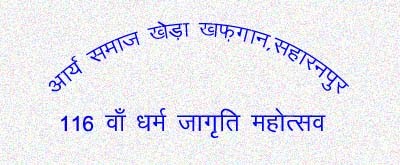 आर्य समाज खेड़ा खफ़गान,सहारनपुर
116 वाँ धर्म जागृति महोत्सव